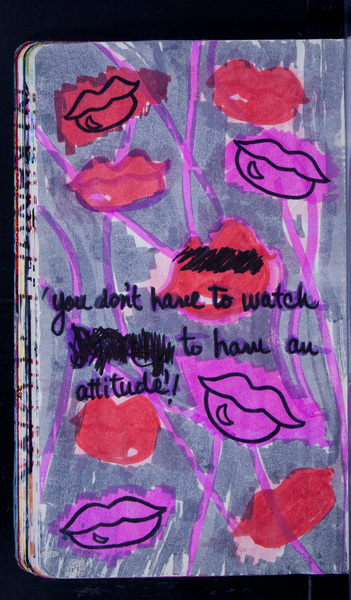 'you don't have to watch
to have an
attitude'!